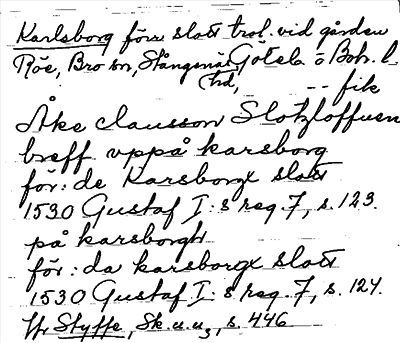 Karlsborg förr slott trol. vid gården
Röe, Bro sn, Stångenäs Götela ö Boh. l.
hd, -- fik
Åke clausson Slotzloffuen
breff vppå karsborg
för: de Karsborgx slott
1530 Gustaf I:s reg. 7, s. 123.
på karsborgh
för: da karsborgx slott
1530 Gustaf I:s reg. 7, s. 124.
Jfr Styffe, Sk.u.u3, s. 446